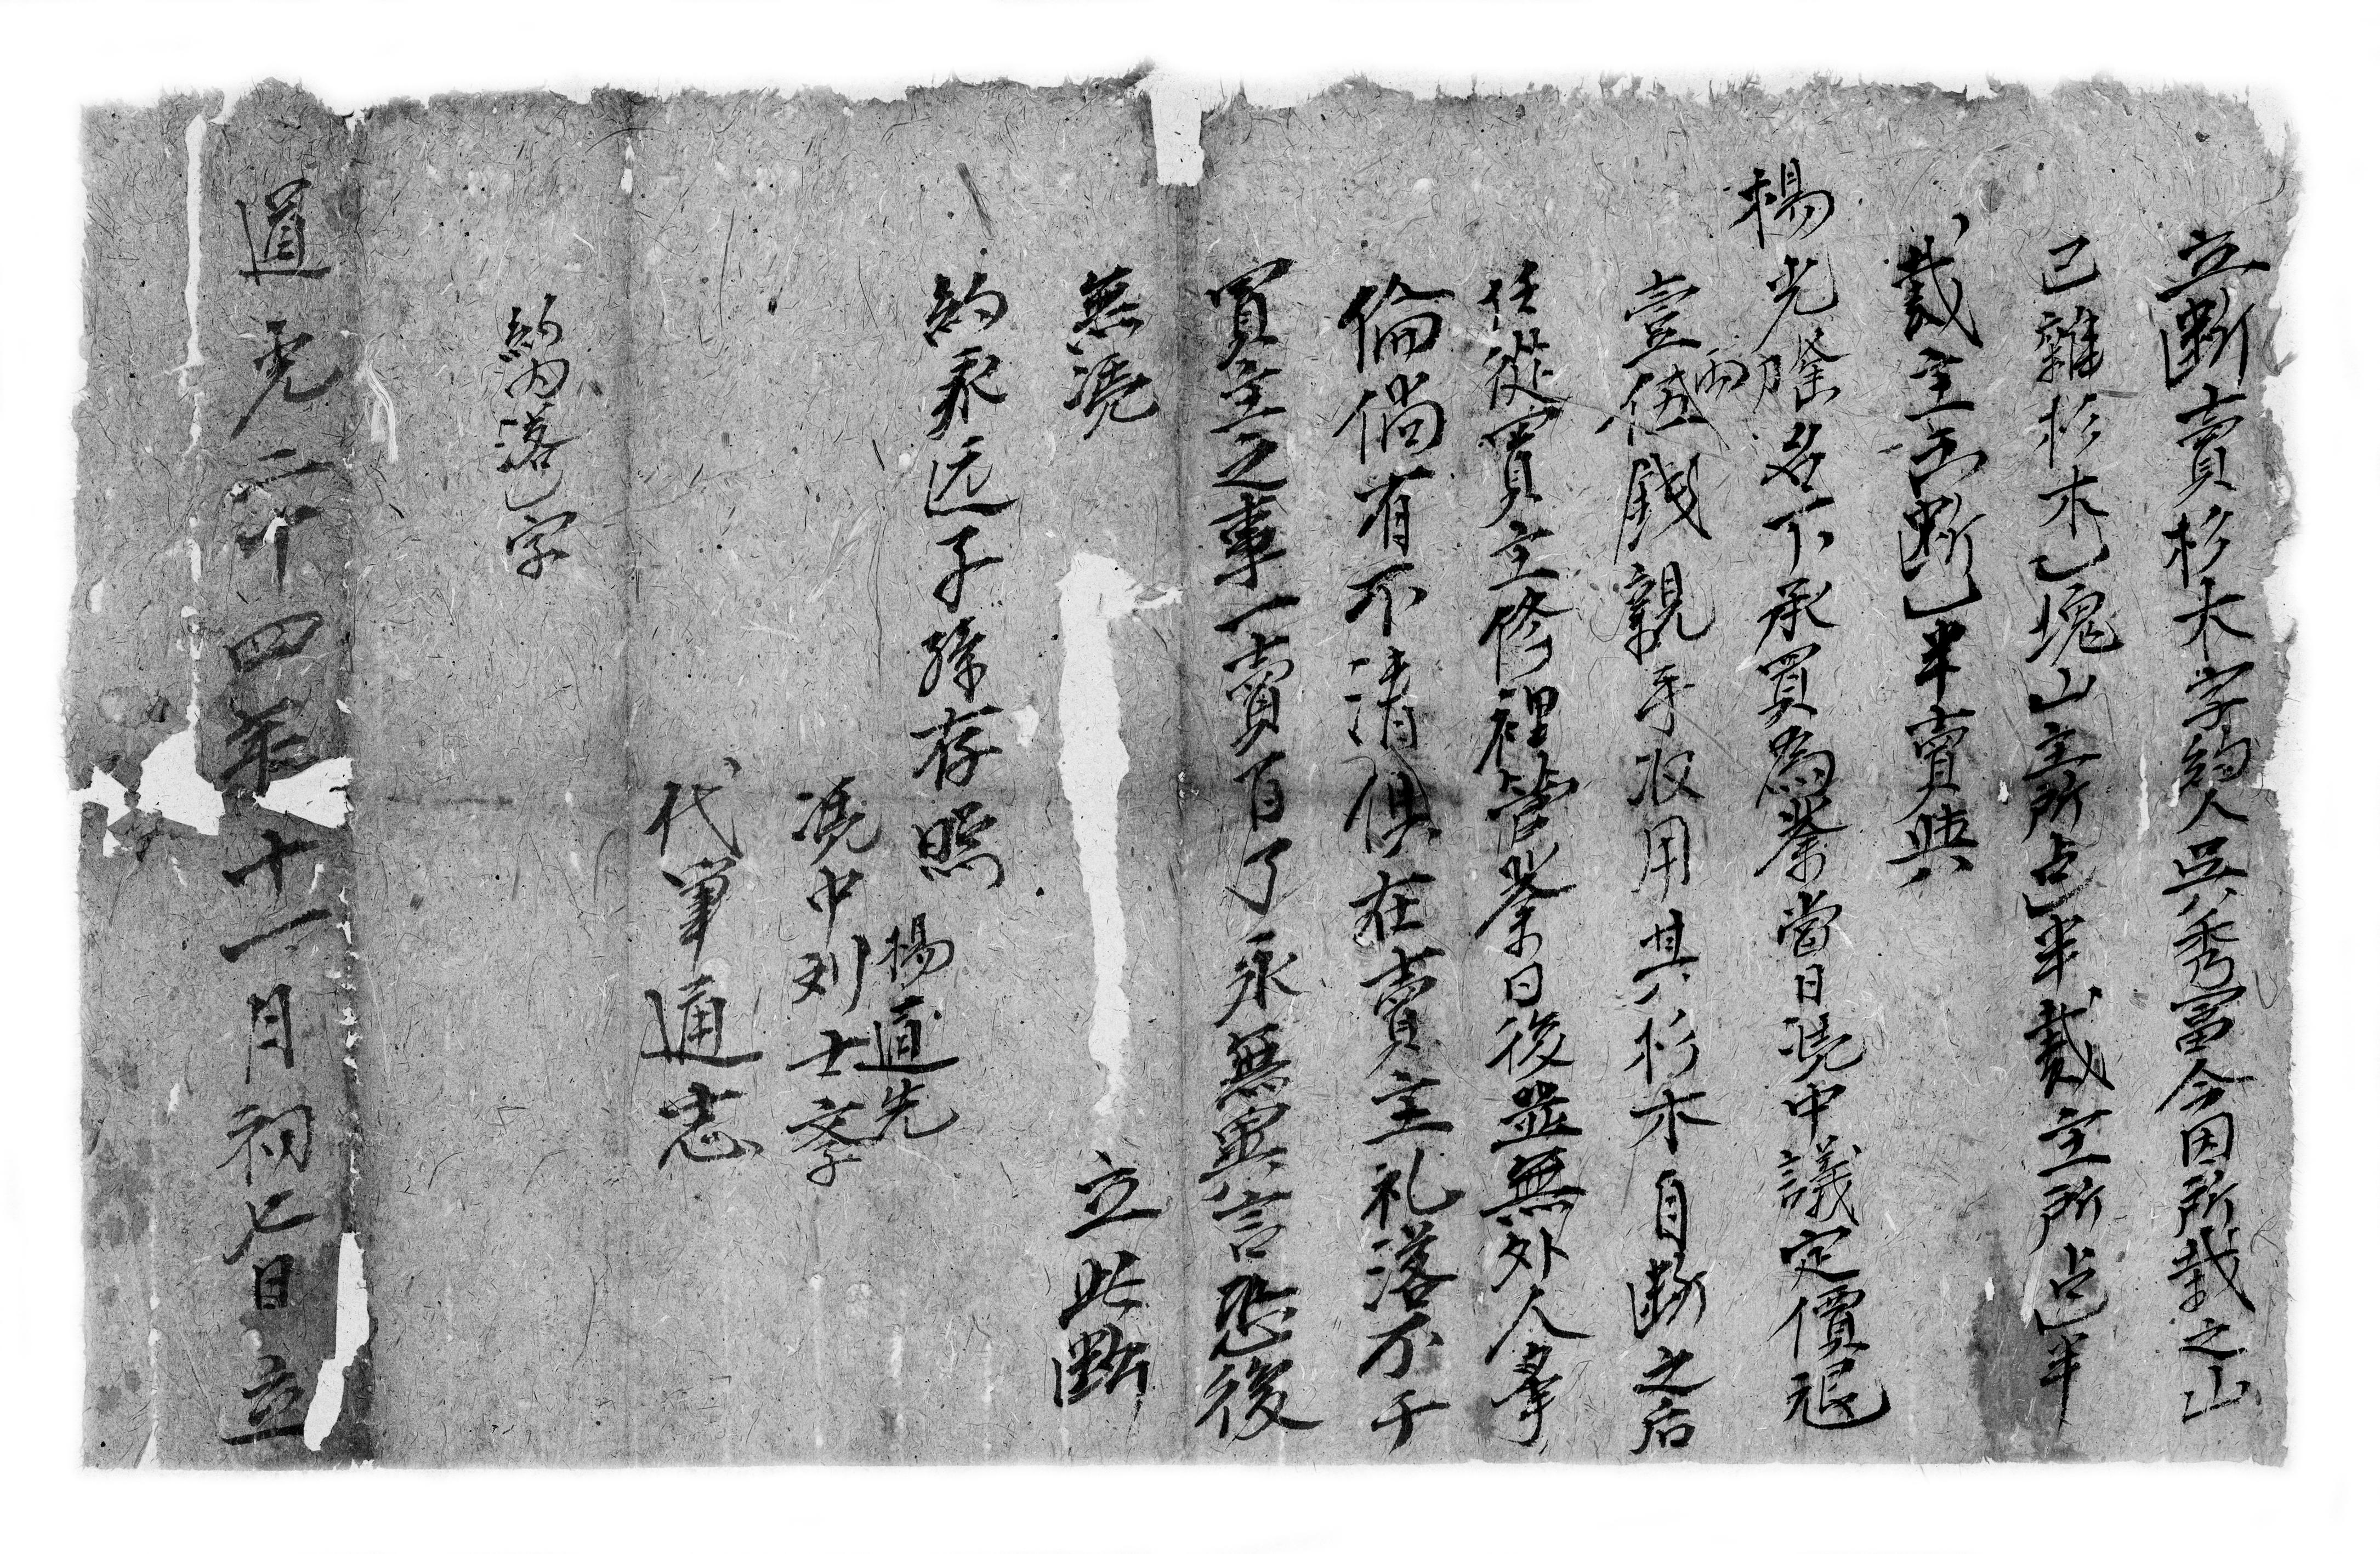 立断賣杉木字約人吳秀冨今因所栽之山
已雜杉木乙塊山主所占乙半栽主所占乙半
栽主出断乙半賣與
楊光隆名下承買為業當日凴中議定價艮
壹兩伍錢親手收用其杉木自断之后
任從買主修裡管業日後並無外人爭
倫倘有不清俱在賣主礼落不干
買主之事一賣百了永無異言恐後
無凴立此断
約永远子孫存照
楊道先
凴中刘士文
代筆通志
約内落乙字
道光二十四年十一月初七日立